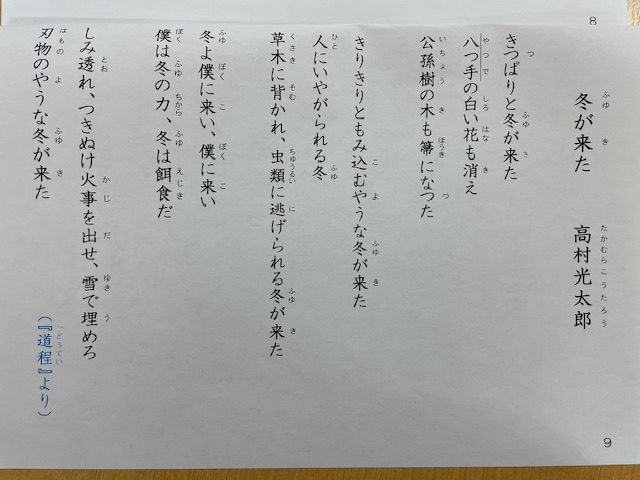 8
冬が来た　高村光太郎
きつぱりと冬が来た
八つ手の白い花も消え
公孫樹の木も箒になつた
きりきりともみ込むやうな冬が来た
人にいやがられる冬
草木に背かれ、虫類に逃げられる冬が来た
冬よ僕に来い、僕に来い
僕は冬の力、冬は餌食だ
しみ透れ、つきぬけ火事を出せ、雪で埋めろ
刃物のやうな冬が来た
（『道程』より）
9